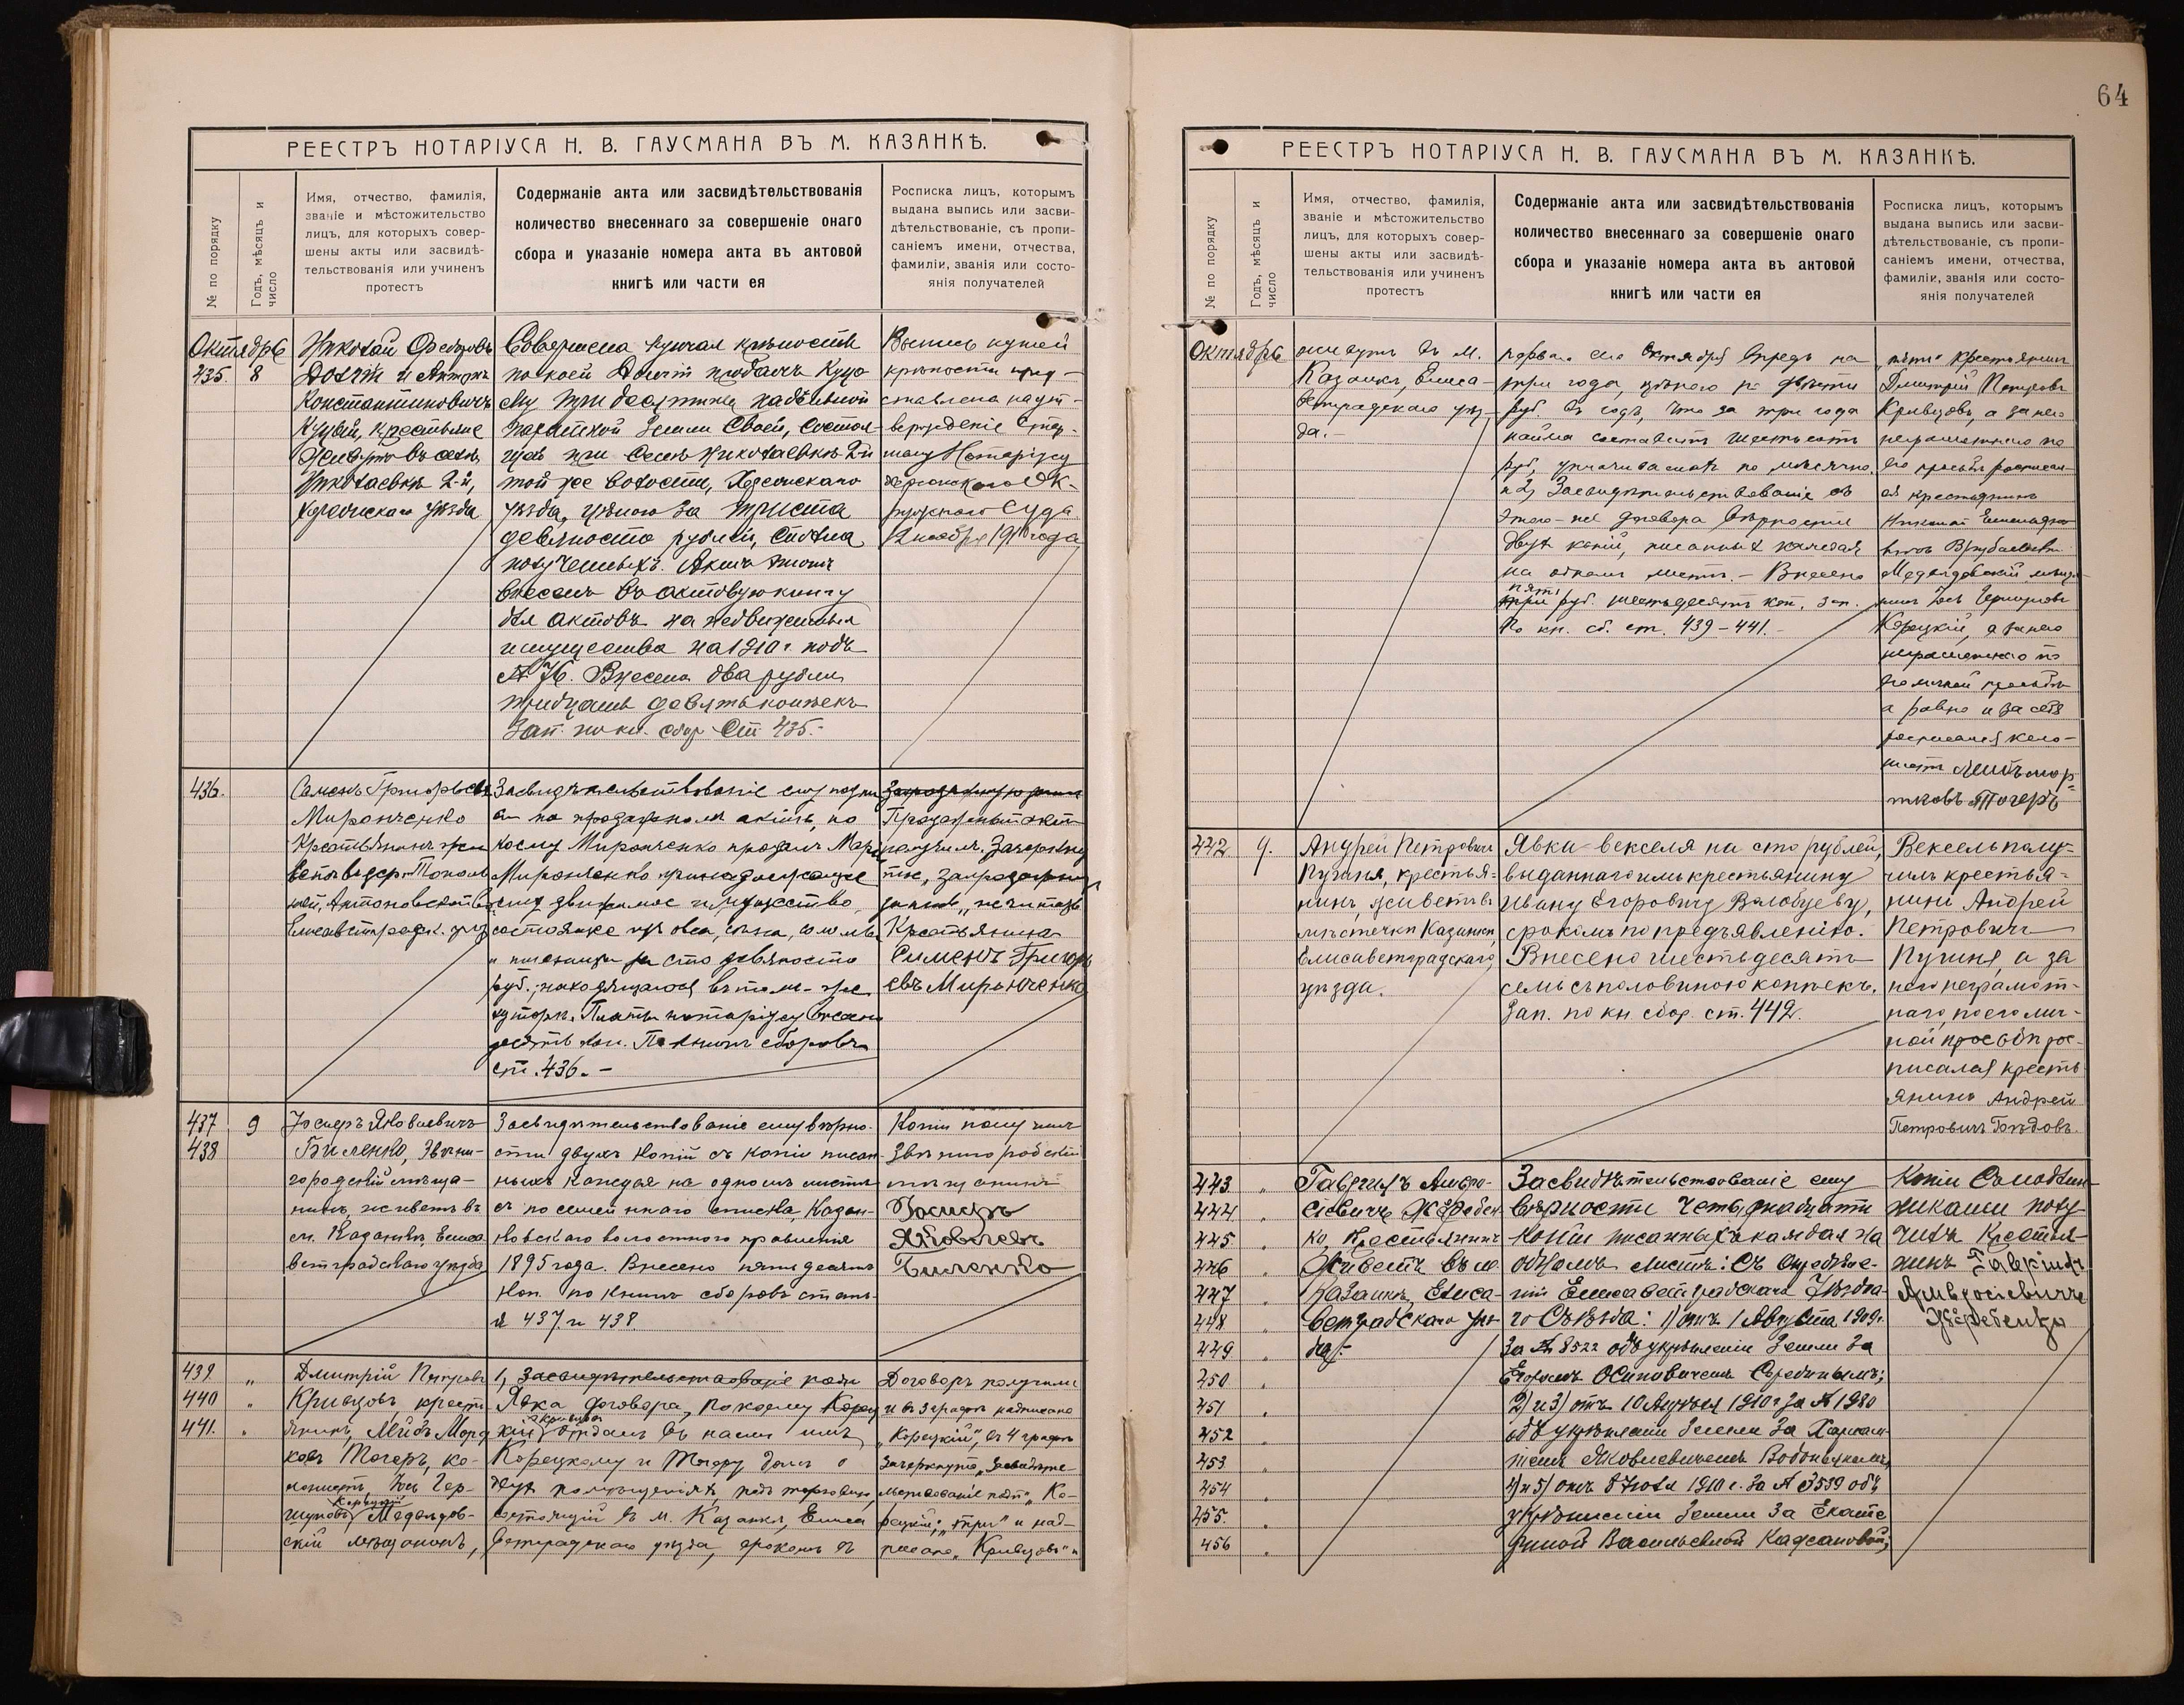 РЕЕСТРЪ НОТАРІУСА Н. В. ГАУСМАНА ВЪ М. КАЗАНКѢ.
№ по порядку
Годъ, мѣсяцъ и
число
Имя, отчество, фамилія,
званіе и мѣстожительство
лицъ, для которыхъ совер-
шены акты или засвидѣ-
тельствованія или учиненъ
протестъ
Содержаніе акта или засвидѣтельствованія
количество внесеннаго за совершеніе онаго
сбора и указаніе номера акта въ актовой
книгѣ или части ея
Росписка лицъ, которымъ
выдана выпись или засви-
дѣтельствованіе, съ пропи-
саніемъ имени, отчества,
фамиліи, званія или состо-
янія получателей
Октября
435. 8
Николай Федоровъ
и Антонъ
Константиновичъ
крестьяне
живутъ въ селѣ
Николаевкѣ 2-й,
Херсонскаго уѣзда
Совершена купчая крѣпость
по коей продалъ
ему три десятины надѣльной
земли своей, состоя-
щей при селѣ Николаевкѣ 2-й
той же волости, Херсонскаго
уѣзда, цѣною за триста
девяносто рублей, сполна
полученныхъ. Актъ этотъ
внесенъ въ актовую книгу
для актовъ на недвижимыя
имущества на 1910 г. подъ
№ 76. Внесено два рубля
тридцать девять копѣекъ
Зап. по кн. сбор. ст. 435.-
Выпись купчей
крѣпости пред-
ставлена на ут-
вержденіе Стар-
шему Нотаріусу
Херсонскаго Ок-
ружнаго Суда
12 ноября 1910 года
436.
Семенъ Григорьевъ
Миронченко
Крестьянинъ
Елисаветградск. уѣз
Засвидѣтельствованіе ему подпи
си на продажномъ актѣ, по
коему Миронченко продалъ
Миронченко принадлежащее
ему движимое имущество,
состоящее изъ овса, сѣна, соломы
и пшеницы за сто девяносто
руб., находящагося въ томъ-же
хуторѣ. Платы нотаріусу
десять коп. По книгѣ сборовъ
ст. 436.-
Продажный актъ
получилъ,
Крестьянинъ
Сименъ Григорь
евъ Мирюченко
437 9
438
Іосифъ Яковлевичъ
Биленко, Звени-
городскій мѣща-
нинъ, живетъ въ
м. Казанкѣ, Елиса
ветградскаго уѣзда
Засвидѣтельствованіе ему вѣрно-
сти двухъ копій съ копіи писан-
ныхъ каждая на одномъ листѣ
съ посемейнаго списка, Казан-
ковскаго волостного правленія
1895 года. Внесено пятьдесятъ
коп. по книгѣ сборовъ стать-
и 437 и 438.
Копіи получилъ
Звенигородскій
мѣщанинъ
Іосифъ
Яковлевъ
Биленко
439 „
440 „
441. „
Дмитрій Петровъ
Кривцовъ, кресть-
янинъ, Лейбъ Морд
ковъ Тогеръ, ко-
лонистъ, Іось Гер-
Корецкій
шуновъ
скій мѣщанинъ,
1, Засвидѣтельствованіе подп
Явка договора, по коему Корец
Кривцовъ
кій отдалъ въ наемъ имъ
Корецкому и Тогеру домъ о
двух помѣщеніяхъ подъ торговлю,
состоящій въ м. Казанкѣ, Елиса
ветградскаго уѣзда, срокомъ съ
Договоръ получили
и въ 3 графѣ надписано
„Корецкій", въ 4 графѣ
зачеркнуто „Засвидѣте-
льствованіе подп", Ко-
рецкій; „три" и над-
писано „Кривцовъ" и
64
РЕЕСТРЪ НОТАРІУСА Н. В. ГАУСМАНА ВЪ М. КАЗАНКѢ.
№ по порядку
Годъ, мѣсяцъ и
число
Имя, отчество, фамилія,
званіе и мѣстожительство
лицъ, для которыхъ совер-
шены акты или засвидѣ-
тельствованія или учиненъ
протестъ
Содержаніе акта или засвидѣтельствованія
количество внесеннаго за совершеніе онаго
сбора и указаніе номера акта въ актовой
книгѣ или части ея
Росписка лицъ, которымъ
выдана выпись или засви-
дѣтельствованіе, съ пропи-
саніемъ имени, отчества,
фамиліи, званія или состо-
янія получателей
Октября
живутъ въ м.
Казанкѣ, Елиса-
ветградскаго уѣз-
да.-
перваго сего Октября впредь на
три года, цѣною по двѣсти
руб. въ годъ, что за три года
найма составитъ шестьсотъ
руб., уплачиваемыхъ по мѣсячно.
и 2, Засвидѣтельствованіе съ
этого-же договора вѣрности
двухъ копій, писанныхъ каждая
на одномъ листѣ.- Внесено
пять
три руб. шестьдесятъ коп. Зап.
по кн. сб. ст. 439-441.-
„пять" крестьянинъ
Дмитрій Петровъ
Кривцовъ, а за него
неграмотнаго по
его просьбѣ расписал-
ся крестьянинъ
мѣща-
нинъ Іось Гершуновъ
Корецкій, а за него
неграмотнаго по
его личной просьбѣ
а равно и за себя
росписался коло-
нистъ Лейбъ Мор
тковъ Тогеръ
442 9.
Андрей Петровичъ
Пугиня, крестья-
нинъ, живетъ въ
мѣстечкѣ Казанкѣ,
Елисаветградскаго
уѣзда.
Явка векселя на сто рублей,
выданнаго имъ крестьянину
Ивану Егоровичу Волобуеву,
срокомъ по предъявленію.
Внесено шестьдесятъ
семь съ половиною копѣекъ.
Зап. по кн. сбор. ст. 442.
Вексель полу-
чилъ крестья-
нинъ Андрей
Петровичъ
Пугиня, а за
него неграмот-
наго, по его лич-
ной просьбѣ рос-
писался кресть
янинъ Андрей
Петровичъ
443 „
444 „
445 „
446 „
447 „
448 „
449 „
450 „
451 „
452 „
453 „
454 „
455. „
456 „
Гавріилъ Амвро-
сіевичъ Жеребен
ко, Крестьянинъ
Живетъ въ м.
Казанкѣ, Елиса-
ветградскаго уѣз-
да.-
Засвидѣтельствованіе ему
вѣрности четырнадцати
копій писанныхъ каждая на
одномъ листѣ: съ опредѣле-
ній Елисаветградскаго Уѣздна-
го Съѣзда: 1) отъ 1 Августа 1909 г.
за № 8522 объ укрѣпленіи земли за
Егоромъ Осиповичемъ Серединымъ;
2) и 3) отъ 10 Апрѣля 1910 г. за № 1980
объ укрѣпленіи земли за Харлам-
піемъ Яковлевичемъ
4) и 5) отъ 8 Іюля 1910 г. за № 3539 объ
укрѣпленіи земли за Екате
риной Васильевной
Копіи
получ
Крестья-
нинъ Гавріилъ
Амвросіевичъ